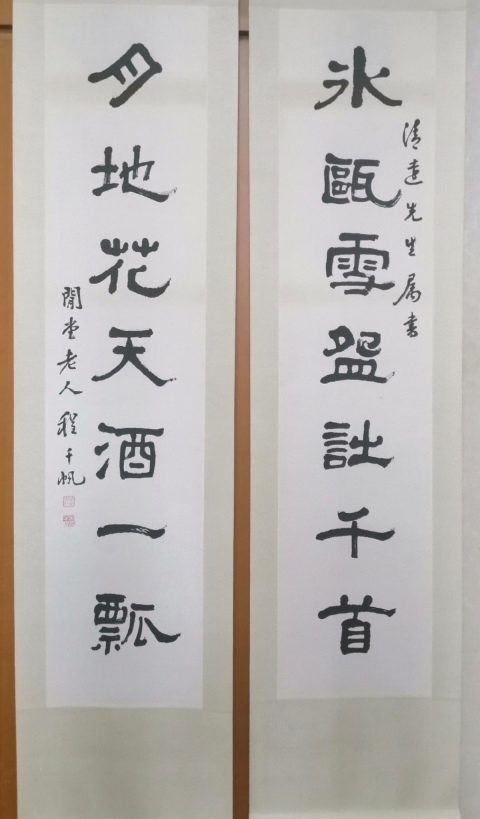 冰甌雪盌詩千首
清遠先生属書
月地花天酒一瓢
閒堂老人程千帆